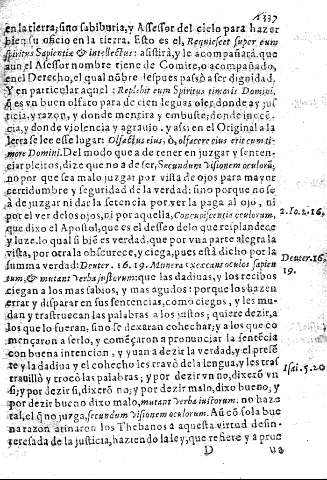 1337
en la tierra; sino sabiburia, y Assessor del cielo para hazer
bien su oficio en la tierra. Esto es el, Requiescet super eum
spiritus Sapientiæ & intellectus: asistirà, y le acompañarà. que
aun el Assessor nombre tiene de Comite, o acompañado,
en el Derecho, el qual nõbre despues passò a ser dignidad.
Y en particular aquel: Replebit eum Spiritus timoris Domini,
q̃ es vn buen olfato para de cien leguas oler donde ay jus
ticia, y razon, y donde mentira y embuste; donde inocē
cia, y donde violencia y agrauio. y assi en el Original a la
letra se lee esse lugar: Olfactus eius, ò, olfacere eius erit cum ti-
more Domini. Del modo que a de tener en juzgar y senten-
ciar pleitos, dize que no a de ser, Secundum visionem oculorũ,
no por que sea malo juzgar por vista de ojos para mayor
certidumbre y seguridad de la verdad: sino porque no se
à de juzgar ni dar la setencia por ver la paga al ojo, ni
por el ver de los ojos, ni por aquella, Concupiscentia oculorum,
que dixo el Apostol, que es el desseo delo que resplandece
y luze. lo qual si biē es verdad. que por vna parte alegra la
vista, por otra la obscurece, y ciega, pues està dicho por la
summa verdad: Deuter. 16. 19. Munera excæcant oculos sapien
tum, & mutant verba iustorum: que las dadiuas, y los recibos
ciegan a los mas sabios, y mas agudos: porque los hazen
errar y disparar en sus sentencias, como ciegos, y les mu-
dan y trastruecan las palabras a los justos; quiere dezir, a
los que lo fueran, sino se dexaran cohechar; y a los que co
mençaron a serlo, y começaron a pronunciar la setēcia
con buena intencion, y yuan a dezir la verdad, y el prese
te y la dadiua y el cohecho les travò de la lengua, y les tras
trauillò y trocò las palabras; y por dezir vn no, dixerõ vn
si; y por dezir si, dixerõ no; y por dezir malo, dixo bueno, y
por dezir bueno dixo malo, mutant verba iustorum. no haz
tal, el q̃ no juzga, secundum visionem oculorum. Aũ cõ sola bue
na razon atinaron los Thebanos à aquesta virtud desin-
teresada de la justicia, hazien do la ley, que refiere y a prue
D
ua
2. Io. 2. 16,
Deuter. 16
19.
Isai. 5. 20